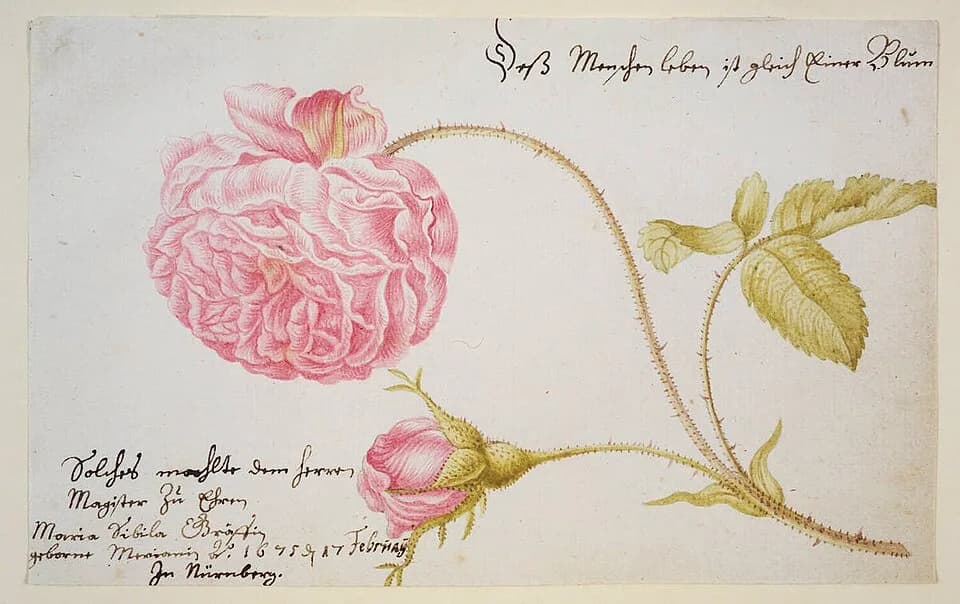 Deß Menschen leben ist gleich Einer Blum
Solches mahlte dem Herren
Magister Zu Ehren
Maria Sibila Gräffin
geborne Merianin Zu 1675 d 17 Februarÿ
In Nürnberg.